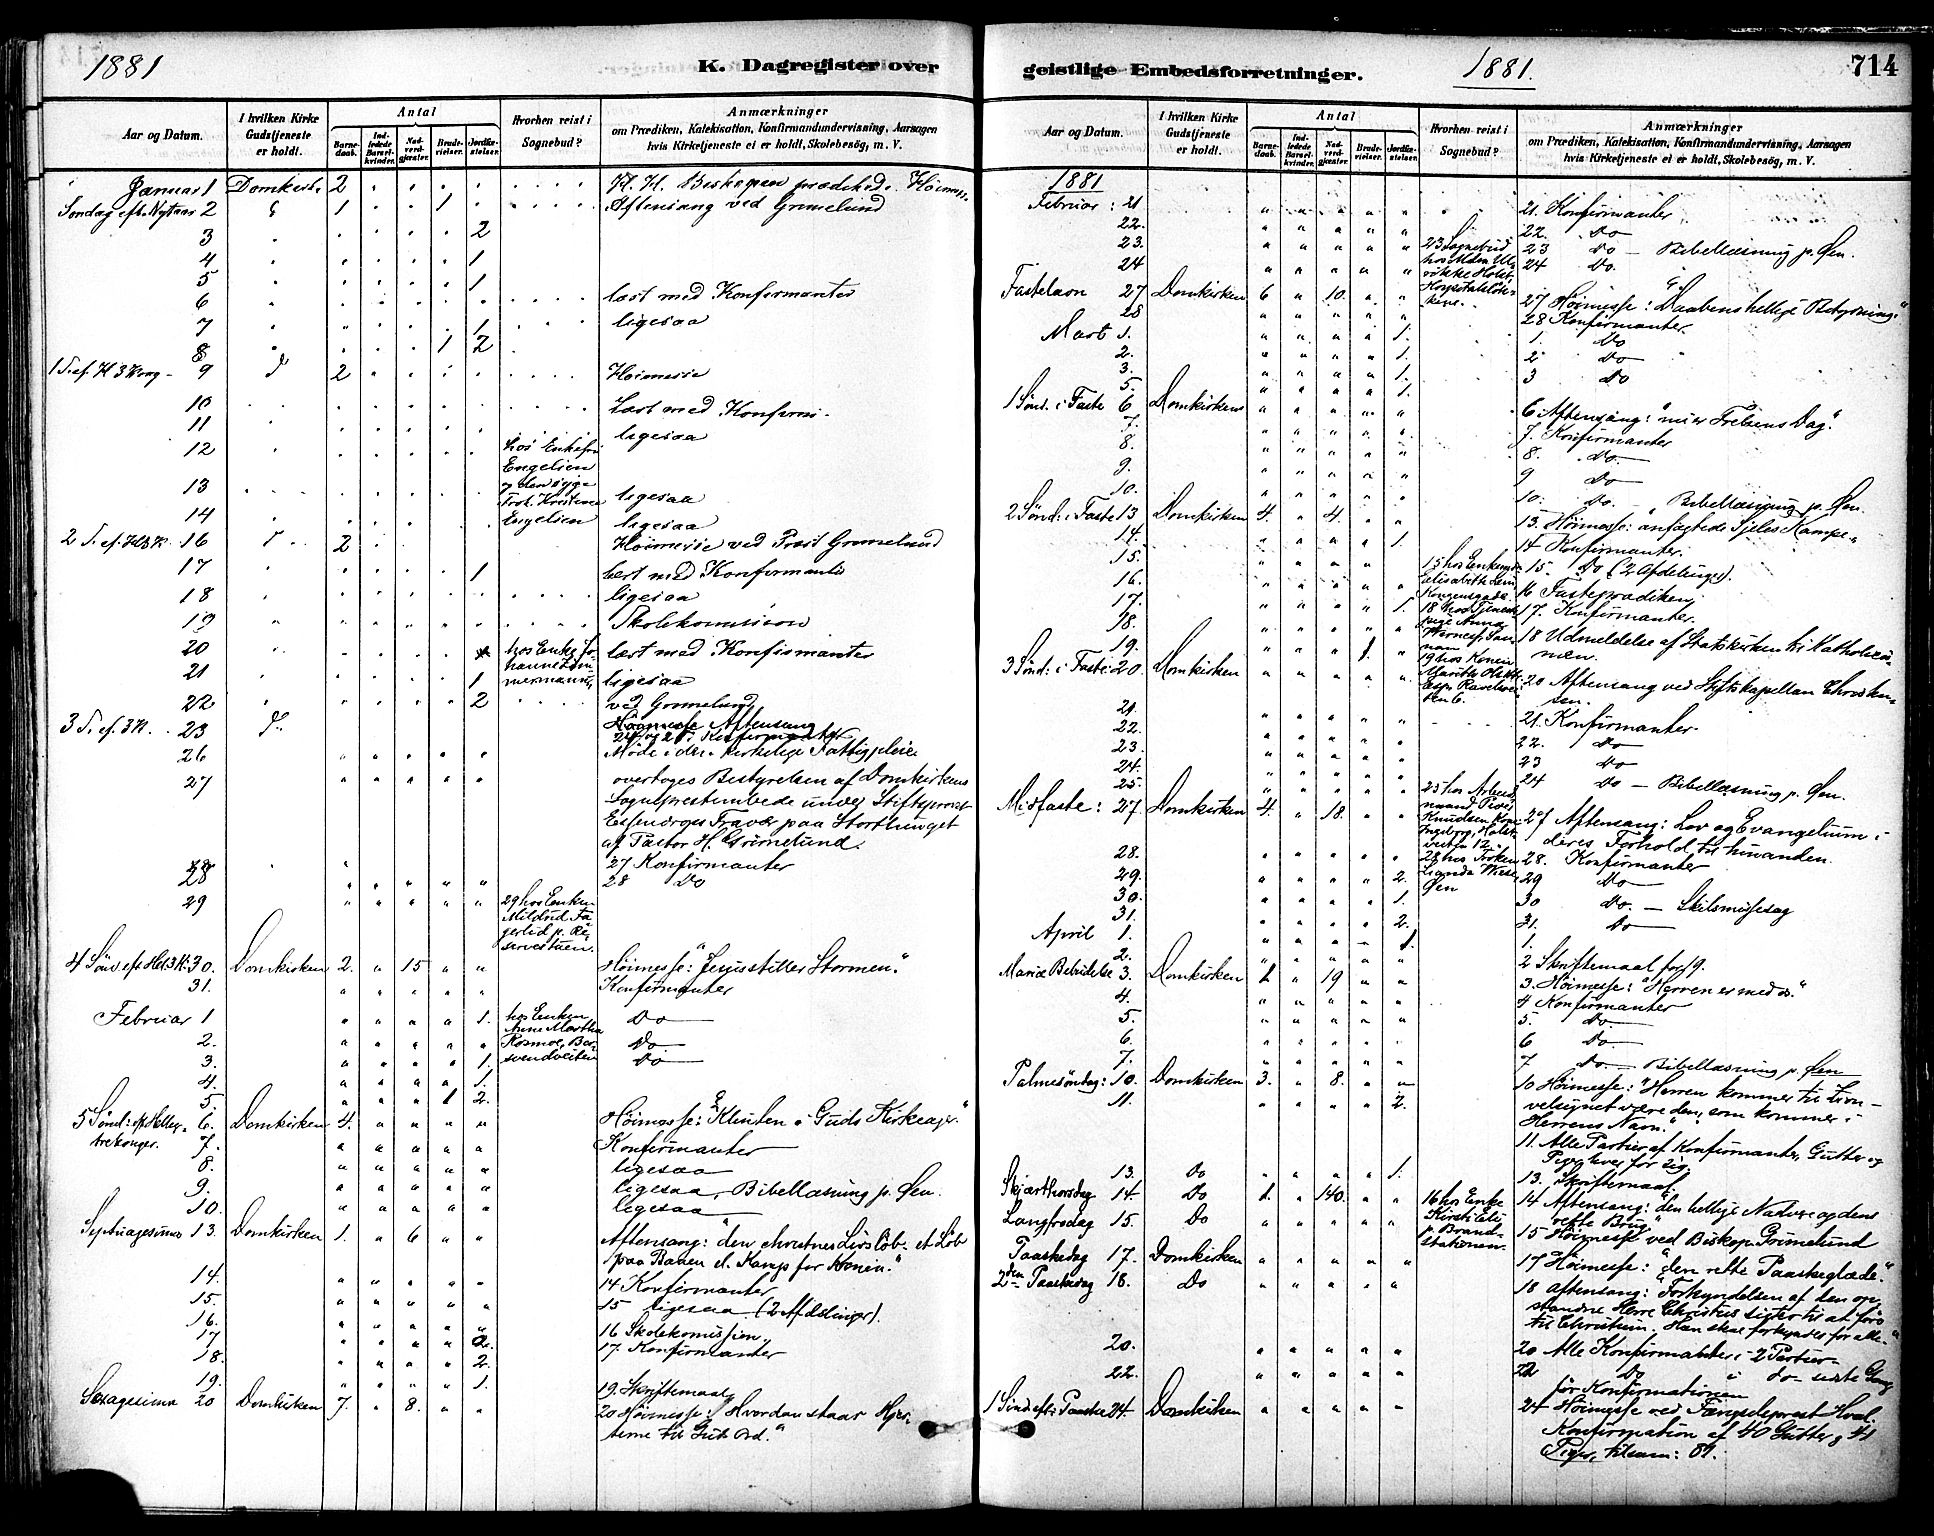 1881
K. Dagregister over
Aar og Datum.
I hvilken Kirke Gudstjeneste er holdt.
Antal
Barnedaab.
Indledede Barselkvinder.
Nadverdgjæster.
Brudevielser.
Jordfæstelser.
Hvorhen reist i Sognebud?
Anmærkninger
om Prædiken, Katekisation, Konfirmandundervisning, Aarsagen
hvis Kirketjeneste ei er holdt, Skolebesög, m. V.
Januar 1 Domkirk. 2 H. H. Biskopen prædiked. Høimes.
Søndag eft. Nytaar 2 1 1 Aftensang ved Grimelund
3 2
4 1
5 1
6 læst med Konfirmanter
7 1 ligesaa
8 1 2
1 S. ef. H 3 Kong 9 2 Høimesse
10 Læst med Konfirm.
11 ligesaa
12 hos Enkefru Engelsen
13 og den syge Frøk. Kristine ligesaa
14 Engelsen ligesaa
2 S. ef. H3K. 16 2 Høimesse ved Prost Grimelund
17 1 læst med Konfirmanter
18 ligesaa
19 Skolekomission
20 hos Enke Jo- læst med Konfirmanter
21 1 ligesaa
22 2 ved Grimelund
3 S. ef. 3K. 23 Høimesse Aftensang
26 Møde i den kirkelige Fattigpleie
27 overtoges Bestyrelsen af Domkirkens
Sognepræstembede under Stiftsprovst
Essendrops Fravær paa Storthinget
af Pastor H. Grimelund.
27 Konfirmanter
28 28 Do
29 29 hos Enken
Mildrid Fa-
gerlid p. Re-
servestuen.
4 Sønd eft Hel. 3 K. 30. Domkirken 2. 15 Høimesse: "Jesus stiller Stormen."
31. Konfirmanter
Februar 1 1. hos Enken Do
2. Anne Martha Rosmoe, Ber- Do
3. 1. svendveiten Do
4. 1.
5 1 2.
5 Sønd: ef. Hellig- 6. Domkirken 4. Høimesse: "Klinten i Guds Kirkeager."
trekonger. 7. Konfirmanter
8. ligesaa
9. ligesaa, Bibellæsning p. Øen.
10. ligesaa
Septuagesima 13. Domkirken 1. 6 Aftensang: "den christnes Livsløb et Løb
paa Banen el. Kamp for Kronen."
14. 14 Konfirmanter
15. 15 ligesaa (2 Afdelinger).
16. 16 Skolekomission,
17 2. 17. Konfirmanter
18. 2.
19. 1. 19. Skriftemaal
Sexagesima 20 Domkirken 7. 8. 20 Høimesse: "Hvordan staar Hjer-
terne til Guds Ord."
geistlige Embedsforretninger.
1881.
714
Aar og Datum.
I hvilken Kirke Gudstjeneste er holdt.
Antal
Barnedaab.
Indledede Barselkvinder.
Nadverdgjæster.
Brudevielser.
Jordfæstelser.
Hvorhen reist i Sognebud?
Anmærkninger
om Prædiken, Katekisation, Konfirmandundervisning, Aarsagen
hvis Kirketjeneste ei er holdt, Skolebesög, m. V.
1881
Februar: 21 21. Konfirmanter
22. 22. Do
23. 23 Sognebud 23 Do — Bibellæsning p. Øen.
24 24 Do.
Fastelavn 27 Domkirken 6 10. 27 Høimesse: "Daabens hellige Betydning."
28 28 Konfirmanter
Mart 1. 1. 1. Do
2. 1. 2 Do
3. 1. 3 Do
5. 1.
1 Sønd. i Faste 6 Domkirken 6 Aftensang: "nu er Frelsens Dag."
7. 7. Konfirmanter
8. 8. Do.
9. 9 Do
10. 10. Do. Bibellæsning p. Øen.
2 Sønd: i Faste 13 Domkirken 4. 4. 13. Høimesse: anfægtede Sjeles Kampe.
14. 1. 14 Konfirmanter.
15. 15 hos Enkemd. 15. Do (2 Afdelinger).
16. Elisabeth 16 Fasteprædiken
17. Kongensgade 1. 17. Konfirmanter.
18. 18 hos Tjenestepige Anna 18 Udmeldelse af Statskirken til Katholicis-
19. 1. men.
3 Sønd: i Faste 20 Domkirken 20 Aftensang ved Stiftskapellan Christen-
sen.
21. 21. Konfirmanter.
22. 22. Do
23. 23 Do
24. 24 Do — Bibellæsning p. Øen.
25. 25 hos Arbeids-
Midfaste: 27. Domkirken 4. 18. mand 27 Aftensang: Lov og Evangelium i
Knudsen deres Forhold til hinanden.
28. 28. Konfirmanter
29. 2. 29 Do
30. 1. Øen 30 Do. — Skilsmissesag
31. 2. 31. Do
April 1. 1. 1.
2. 2 Skriftemaal for 19.
Mariæ Bebudelse 3. Domkirken 1 19 3. Høimesse: "Herren er med os."
4. 4 Konfirmanter
5. 5. Do
6. 6 Do.
7. 7 Do — Bibellæsning p. Øen
Palmesöndag: 10. Domkirken 3. 8. 10 Høimesse: "Herren kommer til Zion—
11. 2. velsignet være den, som kommer i
Herrens Navn."
11. Alle Partier af Konfirmanter, Gutter og
Piger hver for sig.
13. Do 1. 13. Skriftemaal
Skjærthorsdag 14. Do 1. 140. 16 hos Enke 14 Aftensang: "den hellige Nadvere og dens
rette Brug"
Langfredag 15. Do p. Brand-
stationen. 15 Høimesse ved Biskop Grimelund
Paaskedag 17. Domkirken 17 Høimesse: "den rette Paaskeglæde."
2den Paaskedag 18. Do 18 Aftensang: "Forkyndelsen af den op-
standne Herre Christus sigter til at føre
til Christum. Han skal forkyndes for alle."
20. 20 Alle Konfirmanter i 2 Partier
22. 22 Do Do sidste Gang
før Konfirmationen
1 Sönd efter Paaske 24. Domkirken 24 Høimesse ved Fængselsprest Hval.
Konfirmation af 40 Gutter & 41
Piger, tilsam: 81.